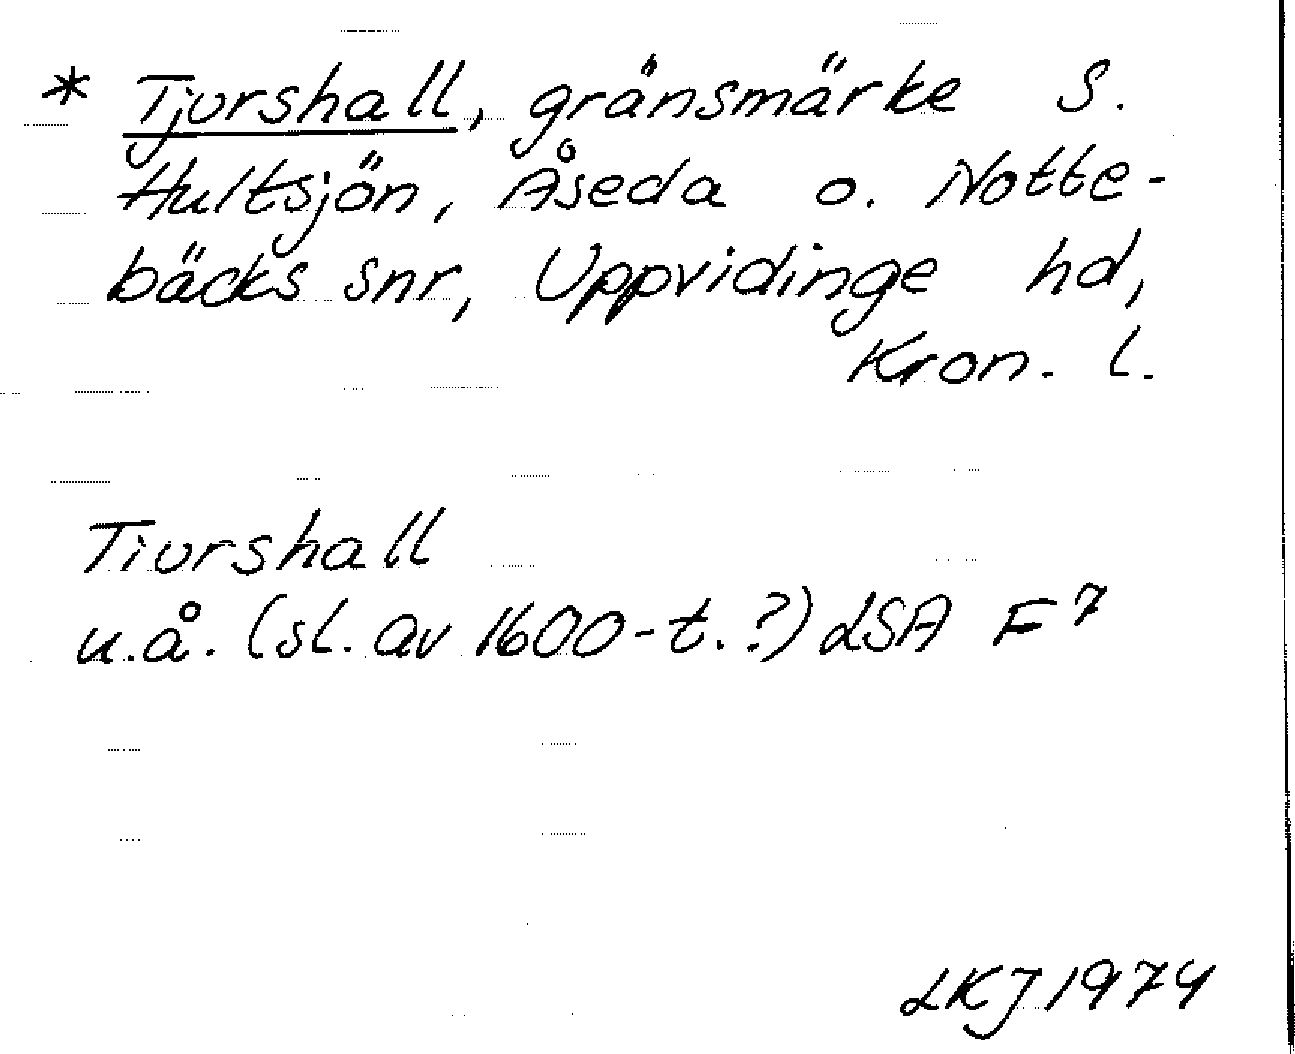 * Tjurshall, gränsmärke S.
Hultsjön, Åseda o. Notte-
bäcks snr, Uppvidinge hd,
Kron. l.
Tiurshall
u.å. (sl. av 1600-t.?) LSA F7
LKJ 1974